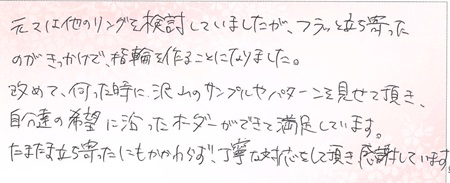 元々は他のリングを検討していましたが、フラッと立ち寄った
のがきっかけで、指輪を作ることになりました。
改めて、伺った時に、沢山のサンプルやパターンを見せて頂き、
自分達の希望に沿ったオーダーができて満足しています。
たまたま立ち寄ったにもかかわらず、丁寧な対応をして頂き感謝しています。